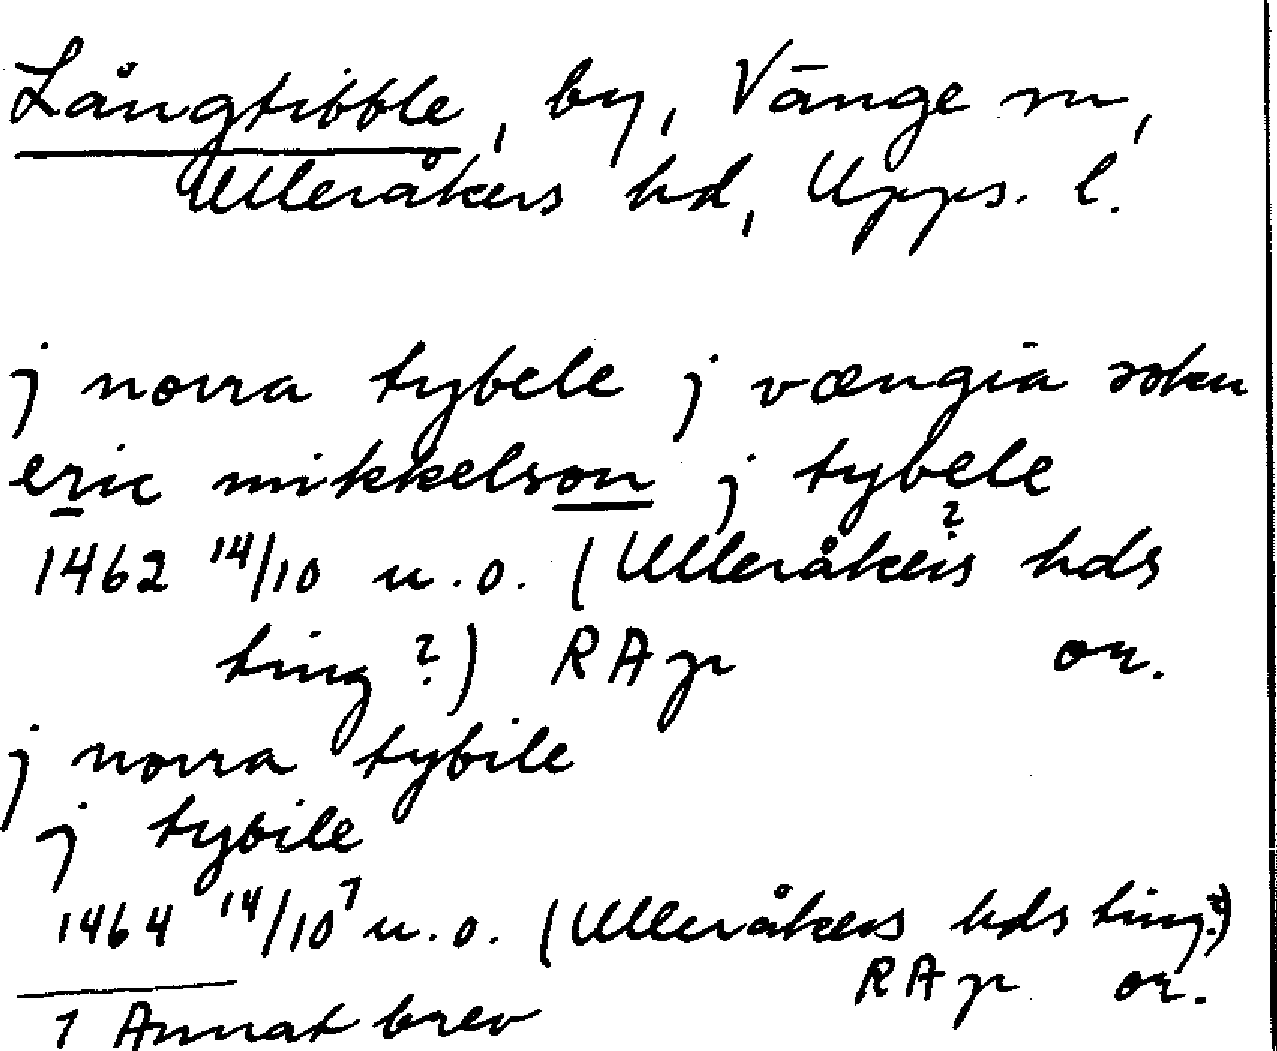 Långtibble, by, Vänge sn,
Ulleråkers hd, Upps. l.
j norra tybele j vængia sokn
eric mikkelson j tybele
1462 14/10 u.o. (Ulleråkers? hds
ting?) RAp or.
j norra tybile
j tybile
1464 14/10 1 u.o. (Ulleråkers hds ting?)
RAp or.
1 Annat brev